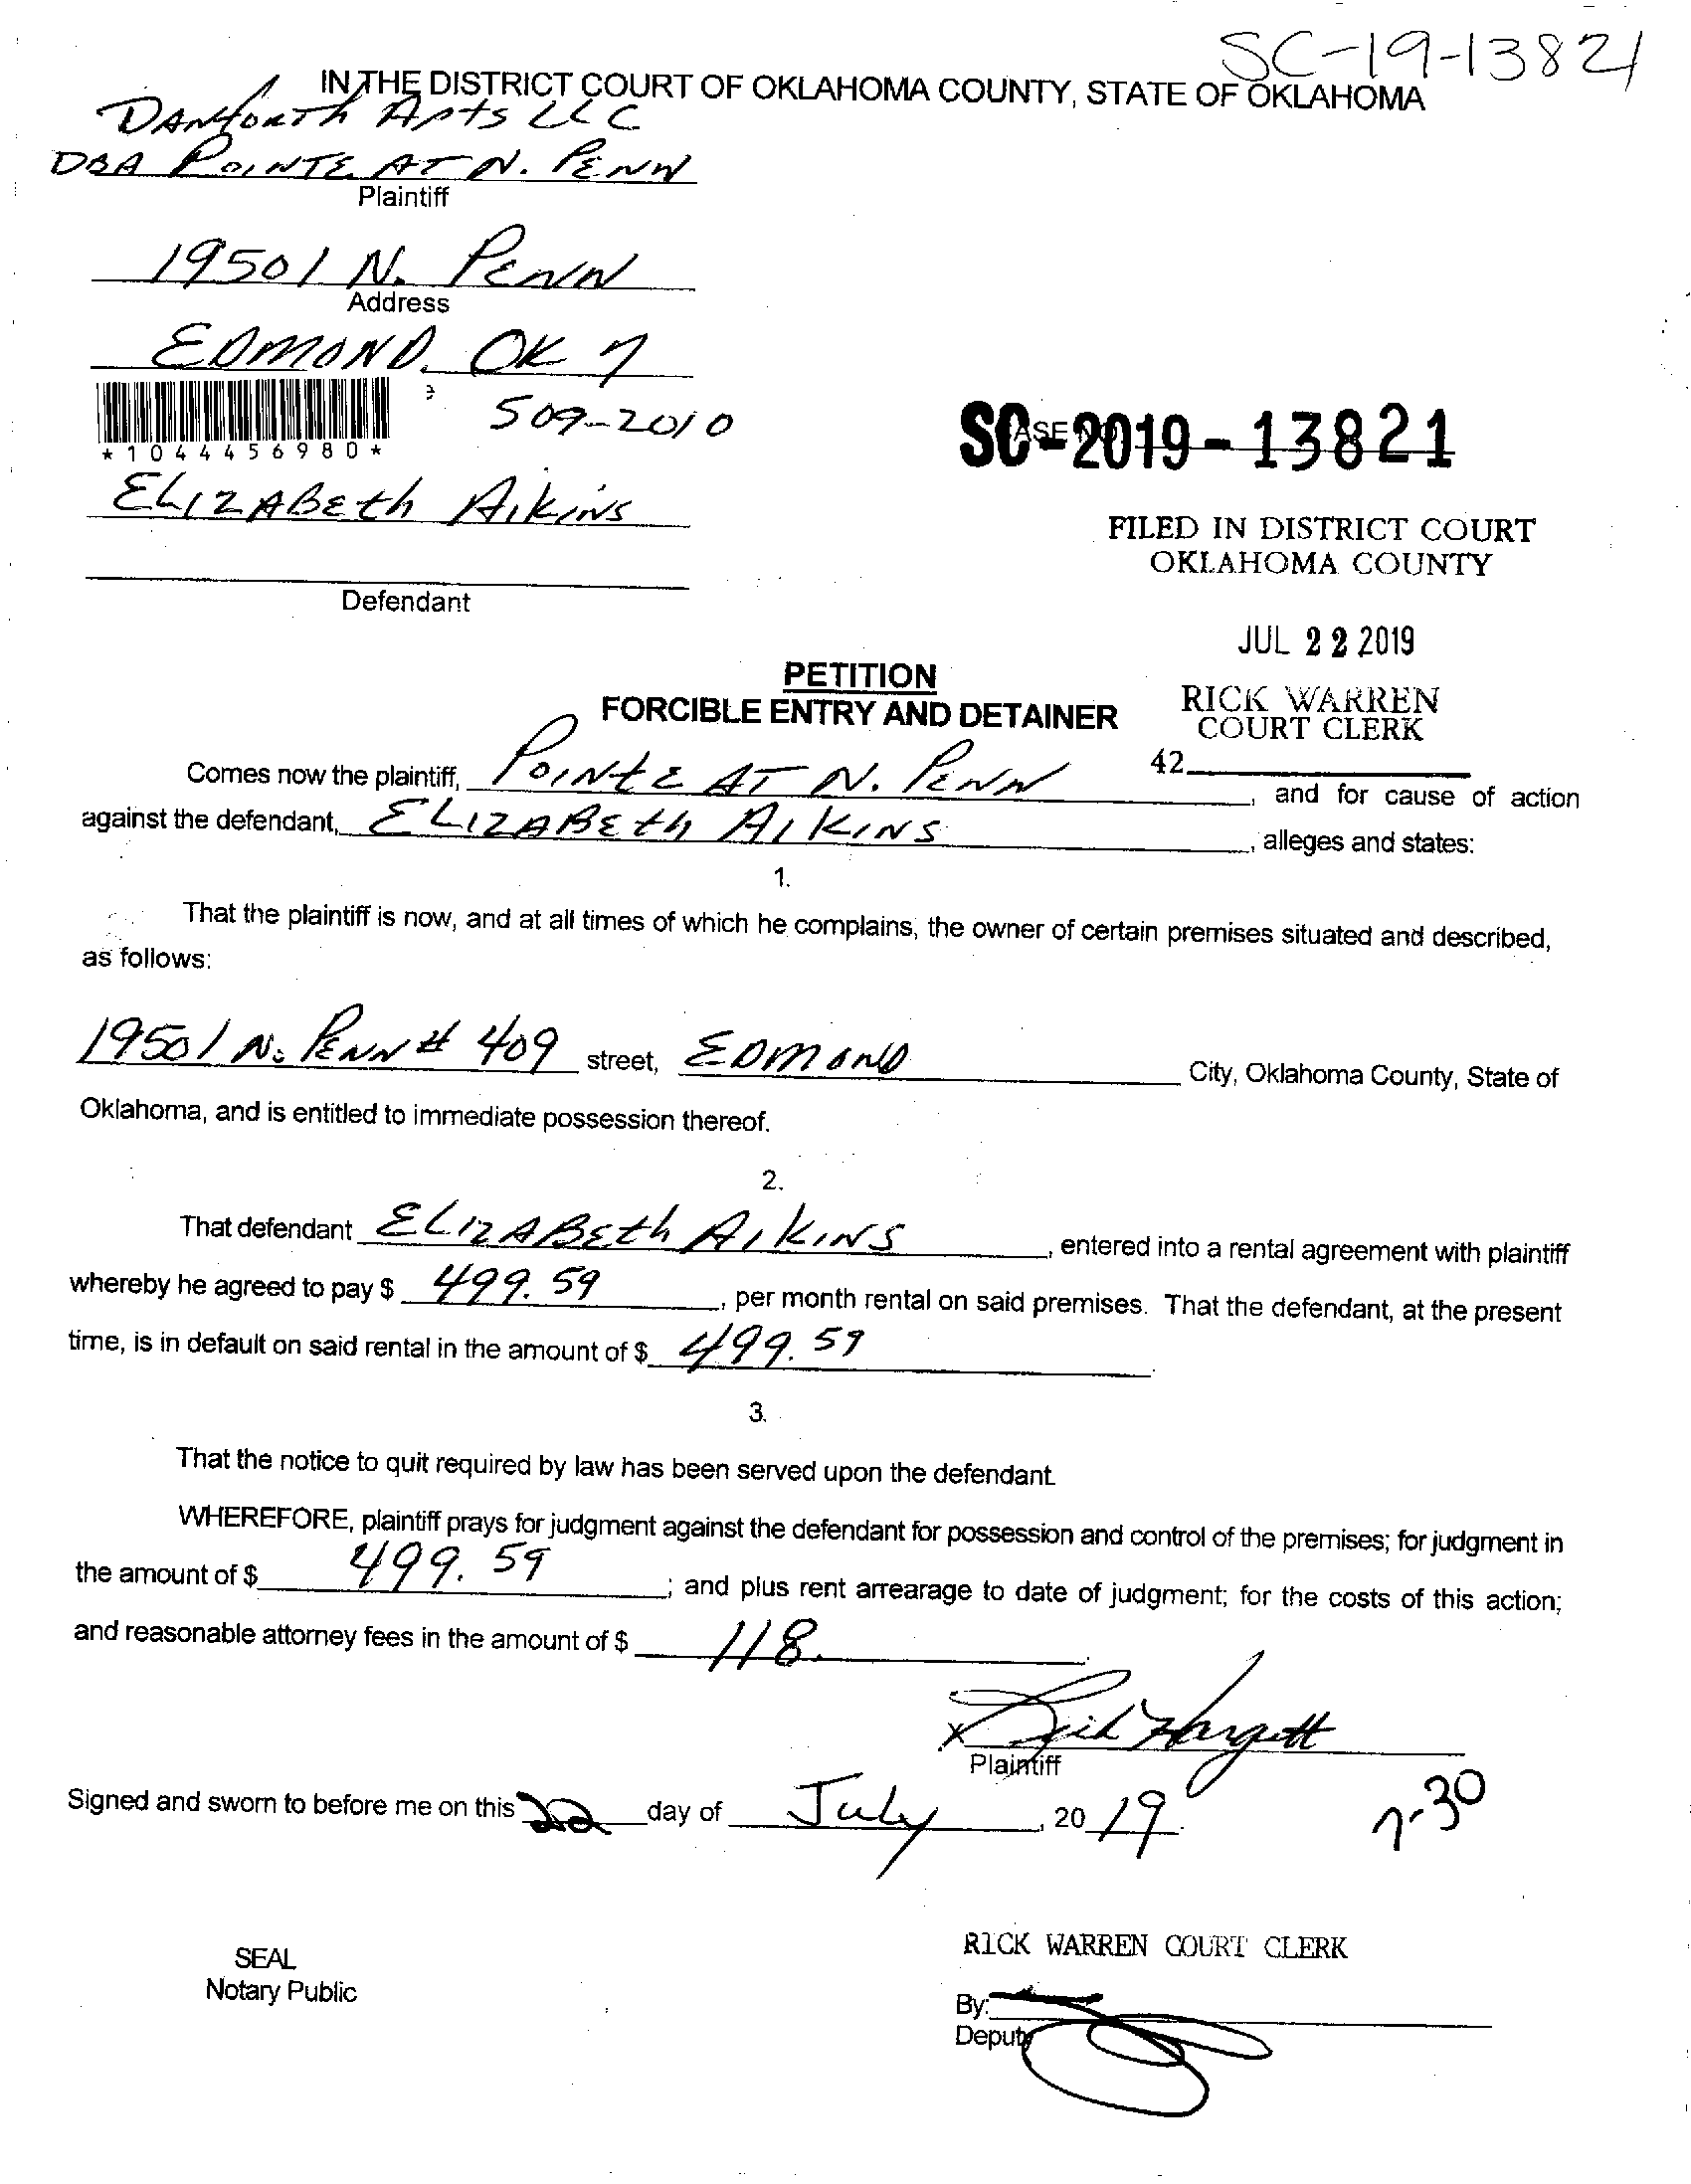 SC-19-13821
IN THE DISTRICT COURT OF OKLAHOMA COUNTY, STATE OF OKLAHOMA
DANFORTH APTS LLC
DBA POINTE AT N. PENN
Plaintiff
19501 N. PENN
Address
EDMOND, OK 7
509-2010
*1044456980*
SC-2019-13821
ELIZABEth AIKINS
FILED IN DISTRICT COURT
OKLAHOMA COUNTY
Defendant
JUL 22 2019
PETITION
FORCIBLE ENTRY AND DETAINER
RICK WARREN
COURT CLERK
42
Comes now the plaintiff, POINtE AT N. PENN, and for cause of action
against the defendant, ELIZABEth AIKINS, alleges and states:
1.
That the plaintiff is now, and at all times of which he complains, the owner of certain premises situated and described,
as follows:
19501 N. PENN # 409 street, EDMOND City, Oklahoma County, State of
Oklahoma, and is entitled to immediate possession thereof.
2.
That defendant ELIZABEth AIKINS, entered into a rental agreement with plaintiff
whereby he agreed to pay $ 499.59, per month rental on said premises. That the defendant, at the present
time, is in default on said rental in the amount of $ 499.59.
3.
That the notice to quit required by law has been served upon the defendant.
WHEREFORE, plaintiff prays for judgment against the defendant for possession and control of the premises; for judgment in
the amount of $ 499.59; and plus rent arrearage to date of judgment; for the costs of this action;
and reasonable attorney fees in the amount of $ 118.
X
Hargett
Plaintiff
Signed and sworn to before me on this 22 day of July, 2019.
7-30
RICK WARREN COURT CLERK
SEAL
Notary Public
By:
Deputy